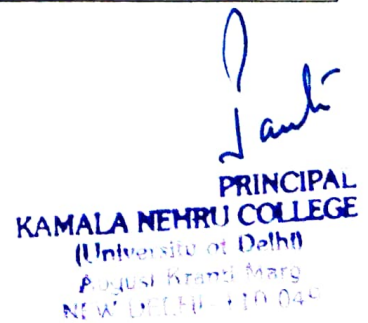 PRINCIPAL
KAMALA NEHRU COLLEGE
(University of Delhi)
August Kranti Marg
NEW DELHI-110 049